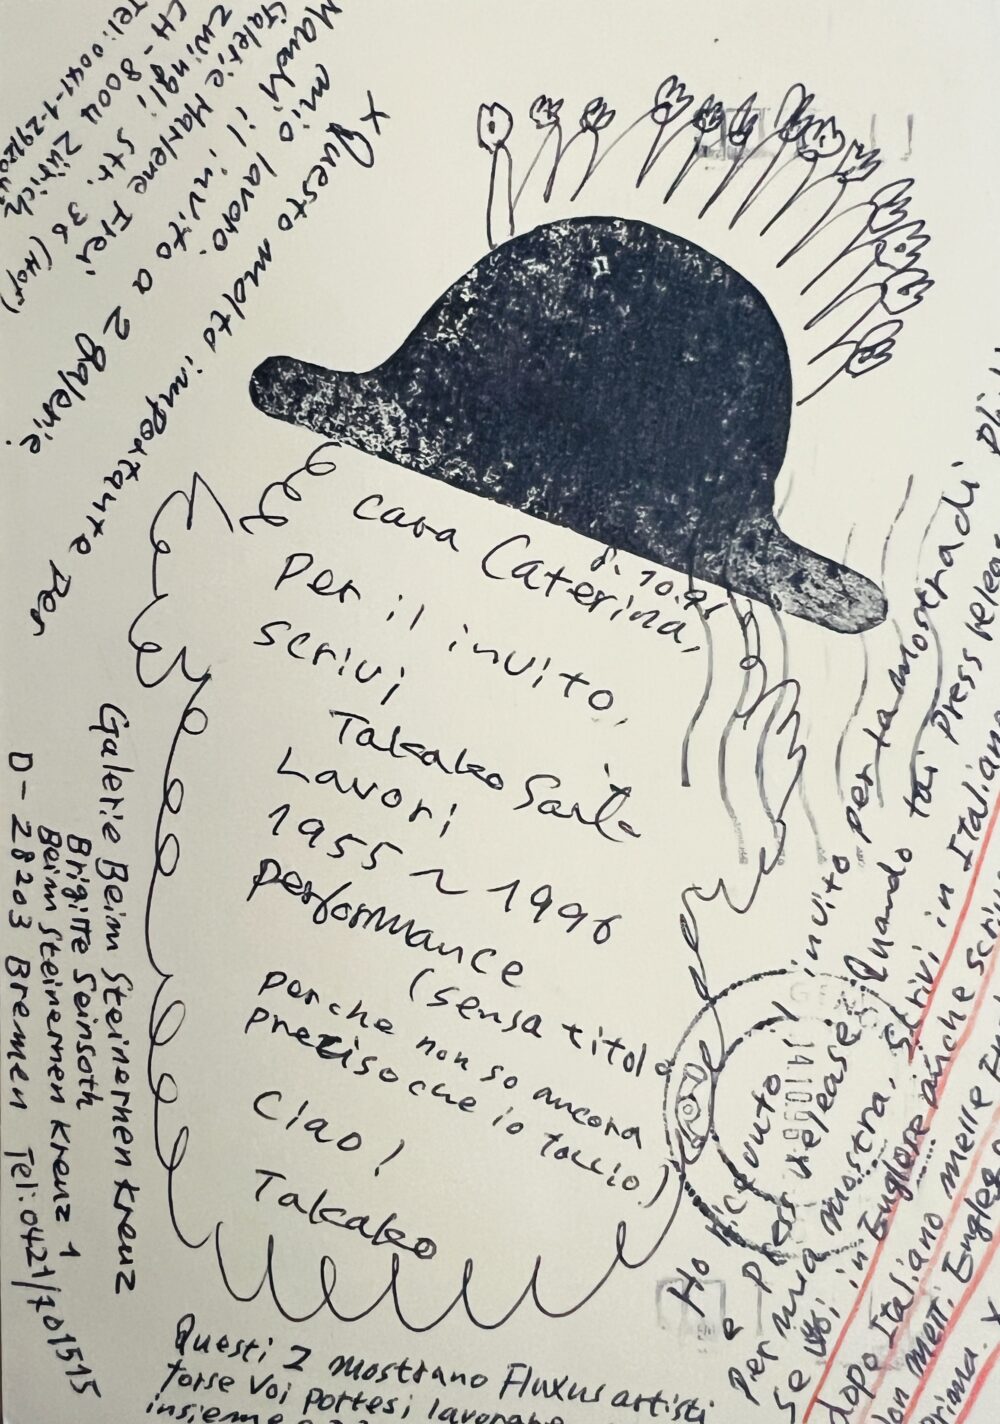 cara Caterina,
8.10.96
Per il invito,
scrivi
Takako Saito
Lavori
1955 ~ 1996
performance
(sensa titolo
perche non so ancora
preciso che io faccio)
Ciao!
Takako
x Questo molto importante per
mio lavoro.
Mandi il invito a 2 Galerie.
Galerie Marlene Frei
Zwingli Str. 36 (Hof)
CH-8004 Zürich
Tel: 0041-1-
Galerie Beim Steinernen Kreuz
Brigitte Seinsoth
Beim Steinernen Kreuz 1
D-28203 Bremen Tel: 0421/701515
Questi 2 mostrano Fluxus artisti
forse Voi
insieme
Ho ricevuto il invito per la mostra di
e Press release. Quando fai Press release
Per mia mostra, scrivi in Italiano
se in Englese anche
dopo Italiano
GEN
14.10.96